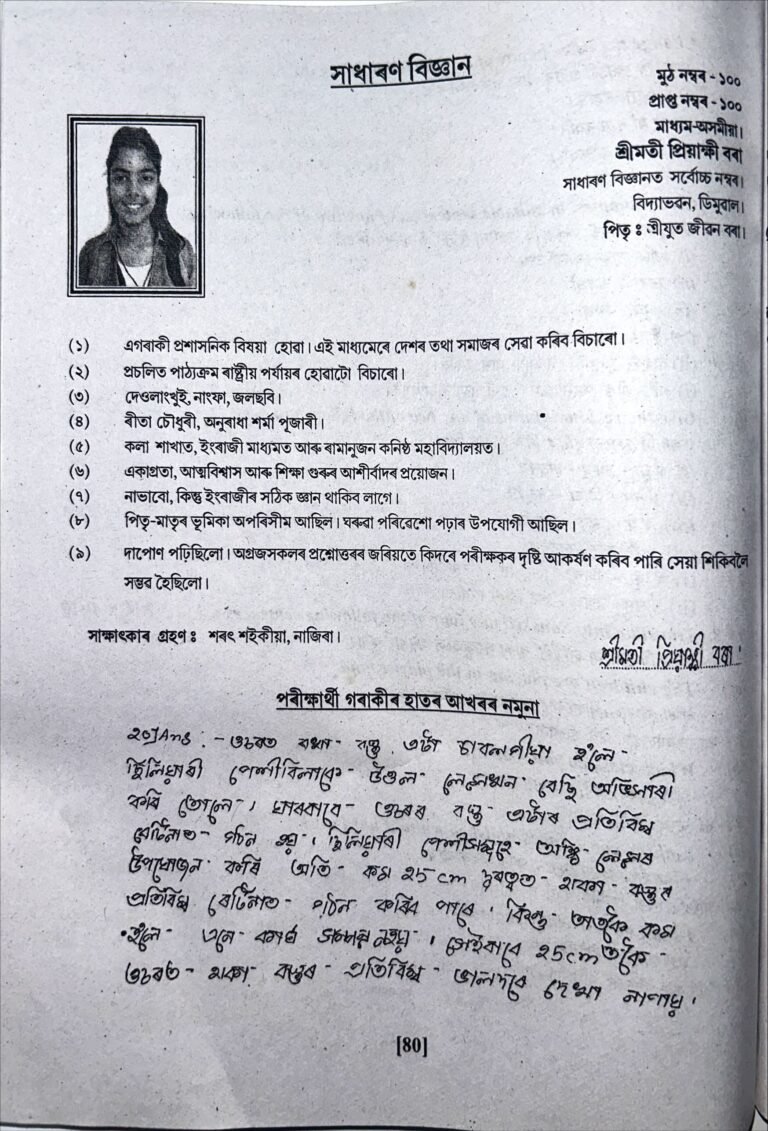 সাধাৰণ বিজ্ঞান
মুঠ নম্বৰ - ১০০
প্ৰাপ্ত নম্বৰ - ১০০
মাধ্যম-অসমীয়া।
শ্ৰীমতী প্ৰিয়াক্ষী বৰা
সাধাৰণ বিজ্ঞানত সৰ্বোচ্চ নম্বৰ।
বিদ্যাভৱন, ডিমুৱাল।
পিতৃ ঃ শ্ৰীযুত জীৱন বৰা।
(১) এগৰাকী প্ৰশাসনিক বিষয়া হোৱা। এই মাধ্যমেৰে দেশৰ তথা সমাজৰ সেৱা কৰিব বিচাৰো।
(২) প্ৰচলিত পাঠ্যক্ৰম ৰাষ্ট্ৰীয় পৰ্যায়ৰ হোৱাটো বিচাৰো।
(৩) দেওলাংখুই, নাংফা, জলছবি।
(৪) ৰীতা চৌধুৰী, অনুৰাধা শৰ্মা পূজাৰী।
(৫) কলা শাখাত, ইংৰাজী মাধ্যমত আৰু ৰামানুজন কনিষ্ঠ মহাবিদ্যালয়ত।
(৬) একাগ্ৰতা, আত্মবিশ্বাস আৰু শিক্ষা গুৰুৰ আশীৰ্বাদৰ প্ৰয়োজন।
(৭) নাভাবো, কিন্তু ইংৰাজীৰ সঠিক জ্ঞান থাকিব লাগে।
(৮) পিতৃ-মাতৃৰ ভূমিকা অপৰিসীম আছিল। ঘৰুৱা পৰিৱেশো পঢ়াৰ উপযোগী আছিল।
(৯) দাপোণ পঢ়িছিলো। অগ্ৰজসকলৰ প্ৰশ্নোত্তৰৰ জৰিয়তে কিদৰে পৰীক্ষকৰ দৃষ্টি আকৰ্ষণ কৰিব পাৰি সেয়া শিকিবলৈ
সম্ভৱ হৈছিলো।
সাক্ষাৎকাৰ গ্ৰহণ ঃ শৰৎ শইকীয়া, নাজিৰা।
শ্ৰীমতী প্ৰিয়াক্ষী বৰা
পৰীক্ষাৰ্থী গৰাকীৰ হাতৰ আখৰৰ নমুনা
২০) Ans : - ওচৰত থকা বস্তু এটা চাবলগীয়া হ'লে
চিলিয়াৰী পেশীবিলাকে উত্তল লেন্সখন বেছি অভিসাৰী
কৰি তোলে। যাৰবাবে ওচৰৰ বস্তু এটাৰ প্ৰতিবিম্ব
ৰেটিনাত গঠন হয়। চিলিয়াৰী পেশীসমূহে অক্ষি লেন্সৰ
উপযোজন কৰি অতি কম 25 cm দূৰত্বত থকা বস্তুৰ
প্ৰতিবিম্ব ৰেটিনাত গঠন কৰিব পাৰে। কিন্তু তাতকৈ কম
হ'লে এনে কাৰ্য সম্পন্ন নহয়। সেইবাবে 25 cm তকৈ
ওচৰত থকা বস্তুৰ প্ৰতিবিম্ব ভালদৰে দেখা নাপায়।
[80]